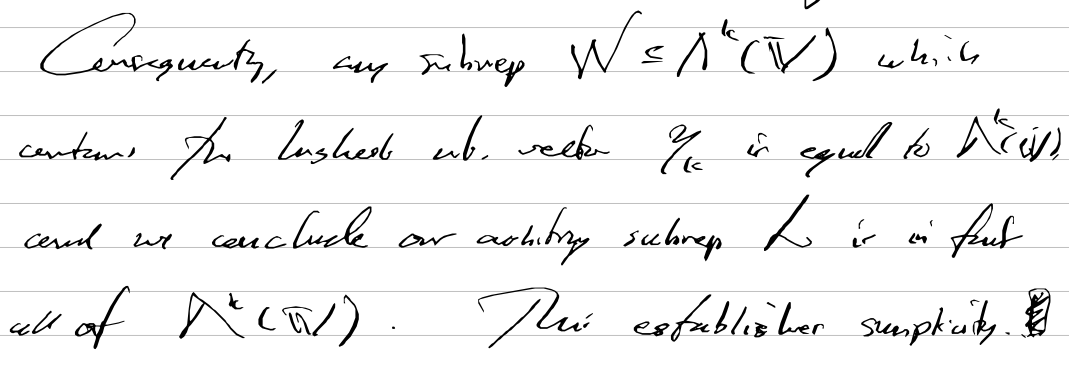 Consequently, any subrep W ⊆ Λ^k(𝕍) which
contains the highest wt. vector v_k is equal to Λ^k(𝕍),
and we conclude our arbitrary subrep L is in fact
all of Λ^k(𝕍). This establishes simplicity.